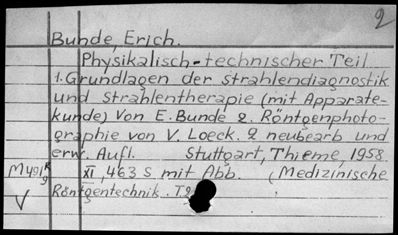 2
Bunde, Erich.
Physikalisch-technischer Teil
1. Grundlagen der Strahlendiagnostik
und Strahlentherapie (mit Apparate-
kunde) Von E. Bunde 2. Röntgenphoto-
graphie von V. Loeck. 2 neubearb und
erw. Aufl. Stuttgart, Thieme, 1958.
XI, 463 S mit Abb. (Medizinische
Röntgentechnik. T2
V